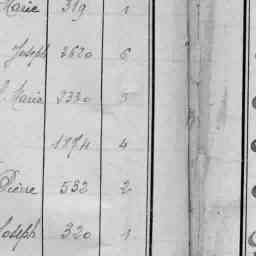 Marie 319 1
Joseph 2620 6
Marie 2330 5
1874 4
Pierre 532 2
Joseph 320 1